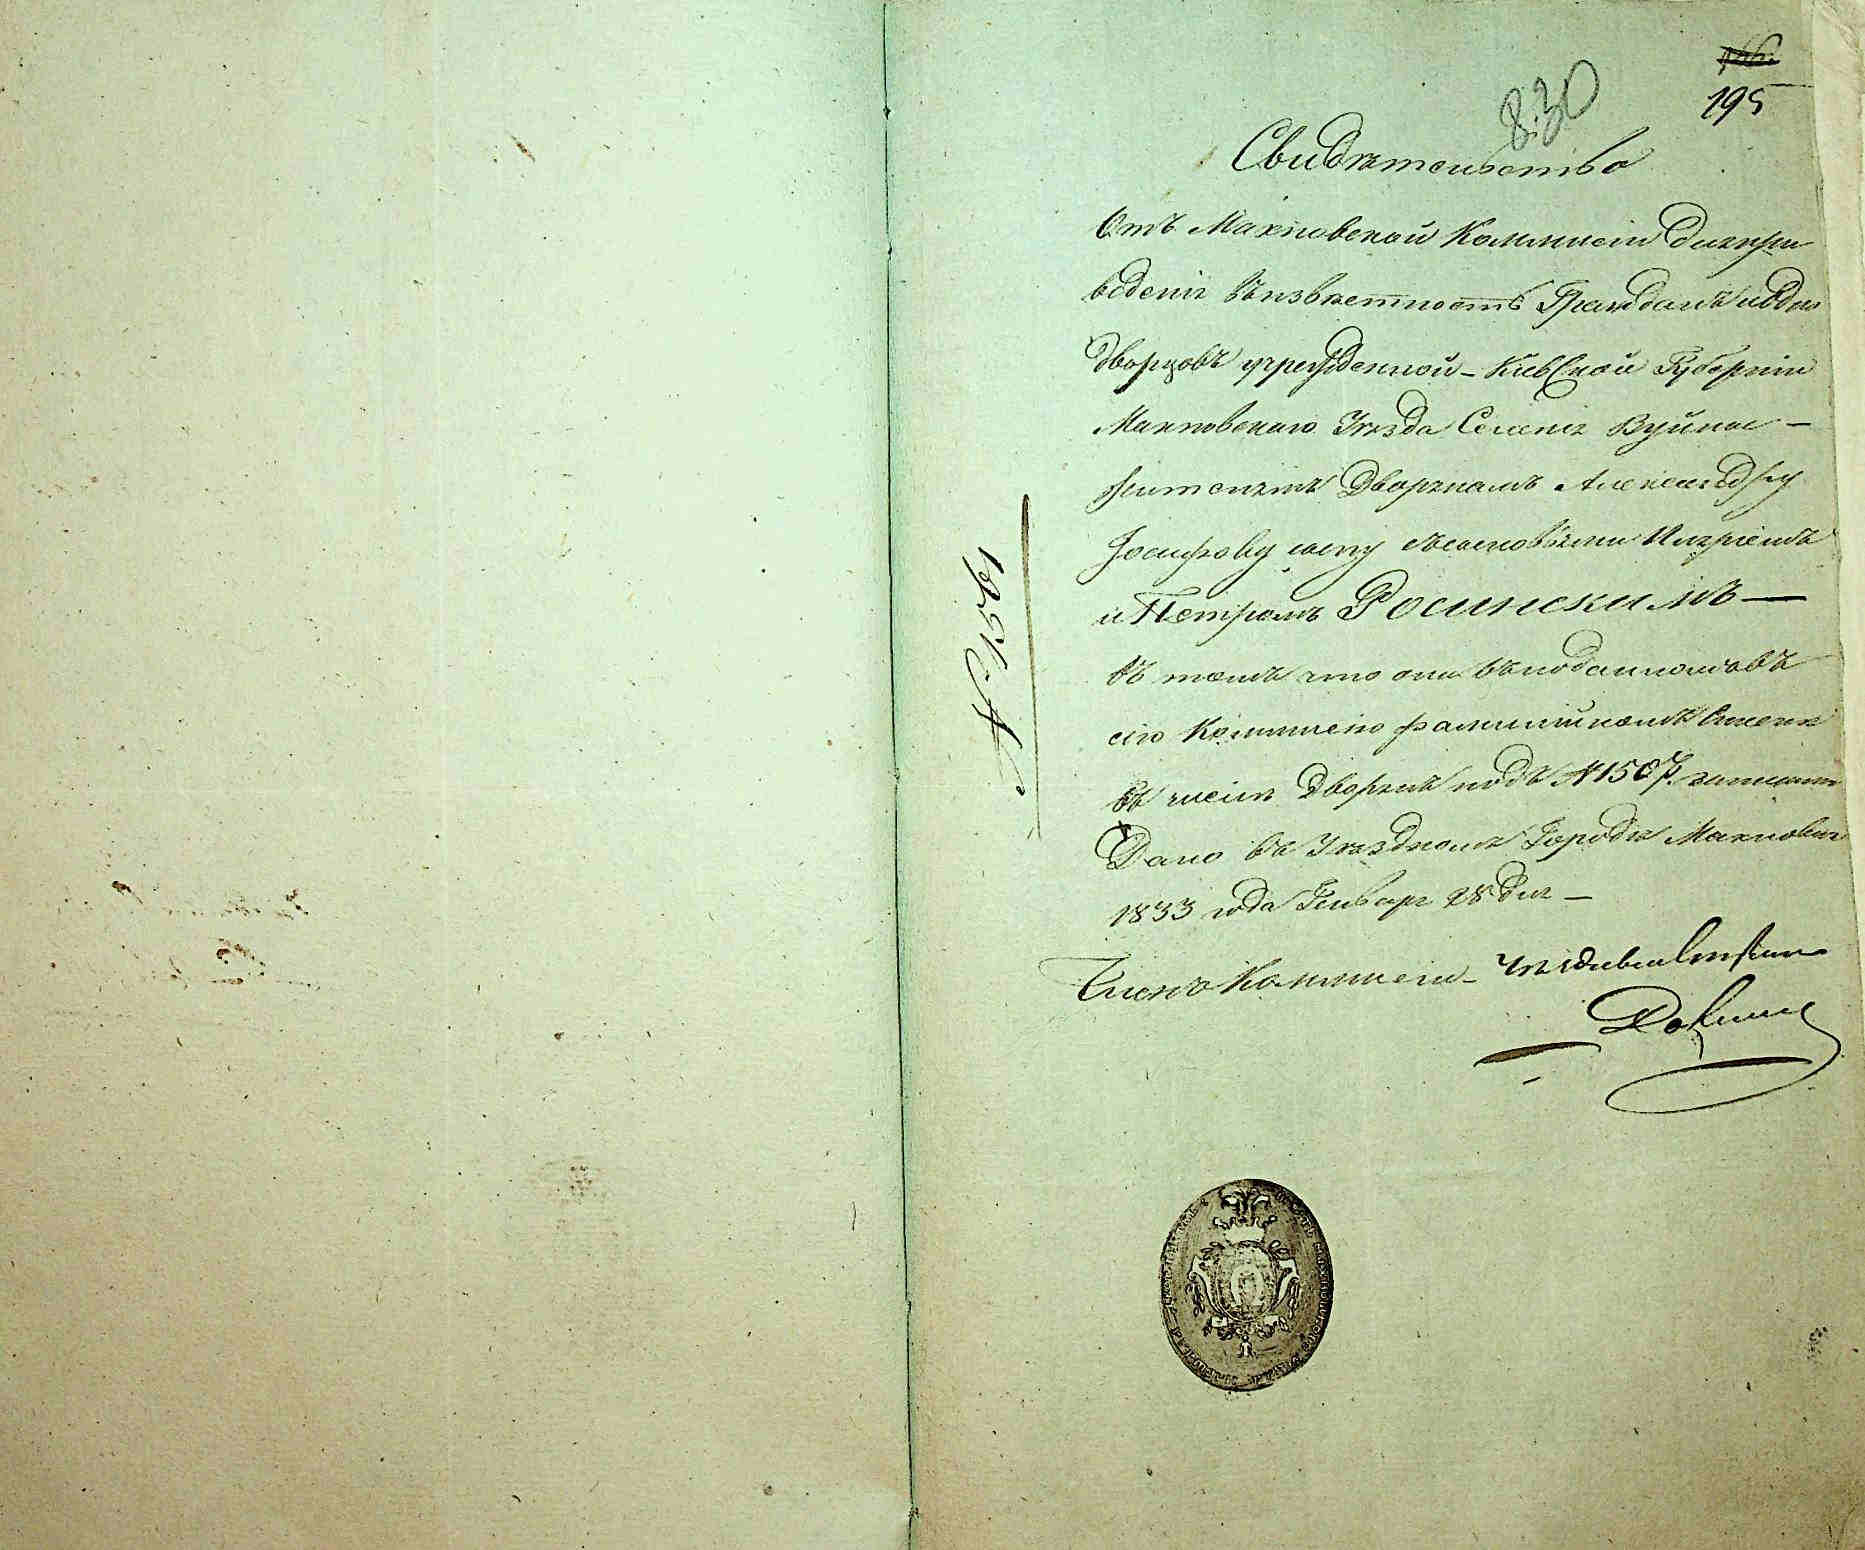 195
830
Свидѣтельство
Отъ Махновской Коммисіи для при
веденія въ извѣстность Гражданъ и Одно
дворцовъ учрежденной – Кіевской Губерніи
Махновскаго Уѣзда Селенія Вуйны –
жителямъ Дворянамъ Александру
Іосифову сыну съ сыновьями
и Петромъ Росинскимъ —
въ томъ что они въ поданномъ въ
сію Коммисію фамилійномъ Списке
въ числѣ Дворянъ подъ №1507. записаны
Дано въ Уѣздномъ Городѣ Махновке
1833 года Генваря 28 дня –
Членъ Коммисіи –
№ 1561